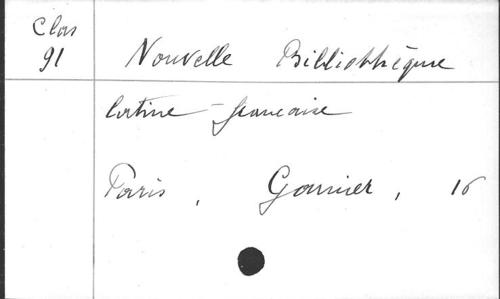 Clas
91
Nouvelle Bibliothèque
latine-française
Paris, Garnier, 16